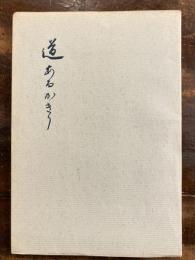 道あるかぎり